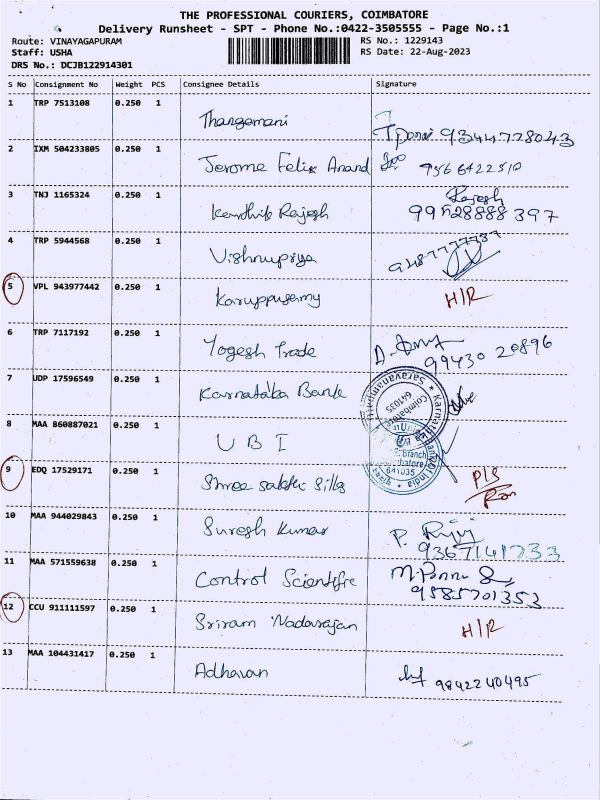 THE PROFESSIONAL COURIERS, COIMBATORE
Delivery Runsheet - SPT - Phone No.:0422-3505555 - Page No.:1
Route: VINAYAGAPURAM RS No.: 1229143
Staff: USHA RS Date: 22-Aug-2023
DRS No.: DCJB122914301
S No Consignment No Weight PCS Consignee Details Signature
1 TRP 7513108 0.250 1 Thangamani 9344778043
2 IXM 504233805 0.250 1 Jerome Felix Anand 9566422510
3 TNJ 1165324 0.250 1 Karthik Rajesh Rajesh
4 TRP 5944568 0.250 1 Vishnupriya 9487777737
5 VPL 943977442 0.250 1 Karuppusamy H/R
6 TRP 7117192 0.250 1 Yogesh Trade
99430 20896
7 UDP 17596549 0.250 1 Karnataka Bank
Coimbatore
641035
8 MAA 860887021 0.250 1 U B I
Branch
641035
9 EDQ 17529171 0.250 1 Shree sakthi Silks
10 MAA 944029843 0.250 1 Suresh Kumar P.
9367141733
11 MAA 571559638 0.250 1 Control Scientific
9585701353
12 CCU 911111597 0.250 1 Sriram Nadarajan H/R
13 MAA 104431417 0.250 1 Adhavan 9842240495